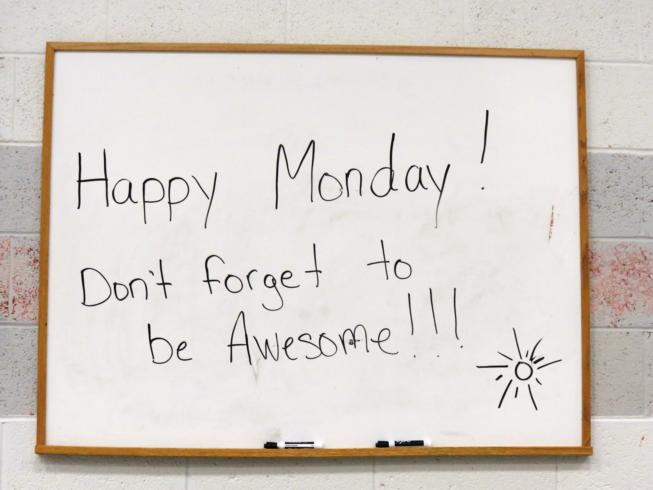 Happy Monday!
Don't forget to
be Awesome!!!